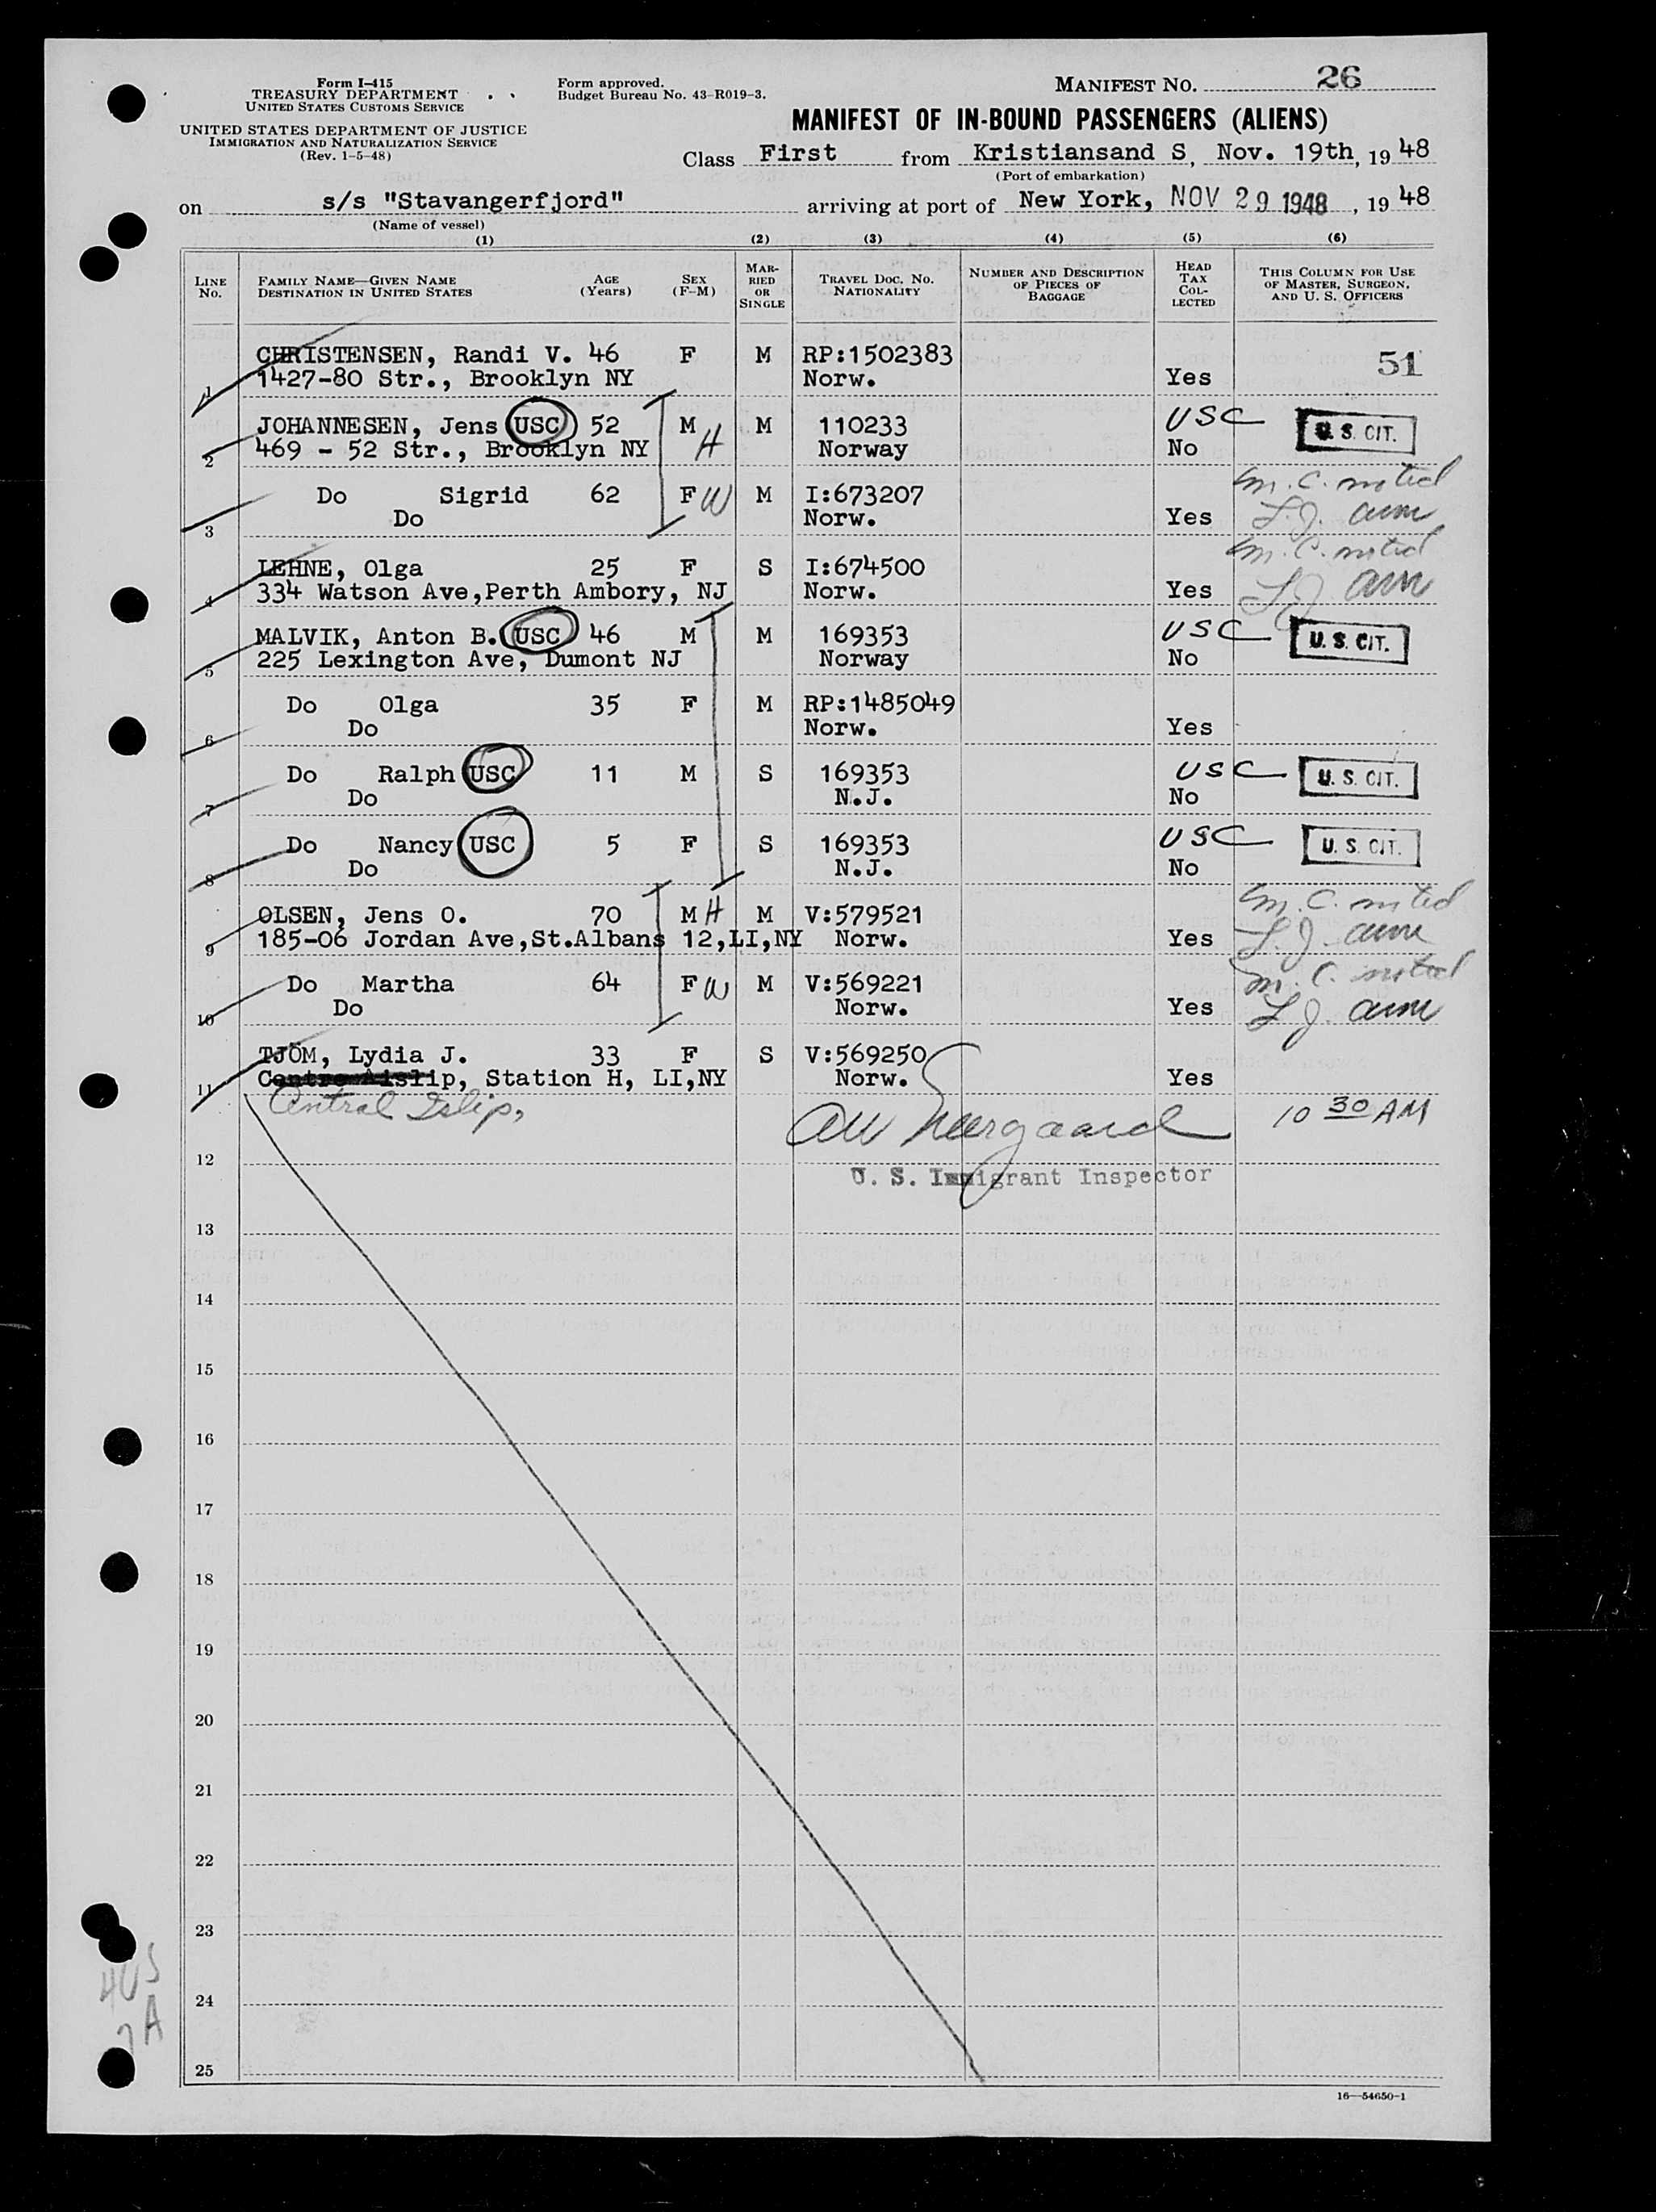 Form I-415
TREASURY DEPARTMENT
UNITED STATES CUSTOMS SERVICE
UNITED STATES DEPARTMENT OF JUSTICE
IMMIGRATION AND NATURALIZATION SERVICE
(Rev. 1-5-48)
Form approved.
Budget Bureau No. 43-R019-3.
MANIFEST NO. 26
MANIFEST OF IN-BOUND PASSENGERS (ALIENS)
Class First from Kristiansand S, Nov. 19th, 19 48
(Port of embarkation)
on s/s "Stavangerfjord" arriving at port of New York, NOV 29 1948, 19 48
(Name of vessel)
(1) (2) (3) (4) (5) (6)
LINE No. FAMILY NAME—GIVEN NAME DESTINATION IN UNITED STATES AGE (Years) SEX (F-M) MARRIED OR SINGLE TRAVEL DOC. NO. NATIONALITY NUMBER AND DESCRIPTION OF PIECES OF BAGGAGE HEAD TAX COLLECTED THIS COLUMN FOR USE OF MASTER, SURGEON, AND U. S. OFFICERS
CHRISTENSEN, Randi V. 46 F M RP:1502383 51
1 1427-80 Str., Brooklyn NY Norw. Yes
JOHANNESEN, Jens USC 52 M H M 110233 USC U. S. CIT.
2 469 - 52 Str., Brooklyn NY Norway No
Do Sigrid 62 F W M I:673207 m. C. noted
3 Do Norw. Yes L.J.
LEHNE, Olga 25 F S I:674500 m. C. noted
4 334 Watson Ave,Perth Ambory, NJ Norw. Yes L.J.
MALVIK, Anton B. USC 46 M M 169353 USC U. S. CIT.
5 225 Lexington Ave, Dumont NJ Norway No
Do Olga 35 F M RP:1485049
6 Do Norw. Yes
Do Ralph USC 11 M S 169353 USC U. S. CIT.
7 Do N.J. No
Do Nancy USC 5 F S 169353 USC U. S. CIT.
8 Do N.J. No
OLSEN, Jens O. 70 M H M V:579521 m. C. noted
9 185-06 Jordan Ave,St.Albans 12,LI,NY Norw. Yes L.J.
Do Martha 64 F W M V:569221 m. C. noted
10 Do Norw. Yes L.J.
TJÖM, Lydia J. 33 F S V:569250
11 Centre Aislip, Station H, LI,NY Norw. Yes
Central Islip,
10 30 AM
12
U. S. Immigrant Inspector
13
14
15
16
17
18
19
20
21
22
23
24
25
4US
7A
16—54650-1